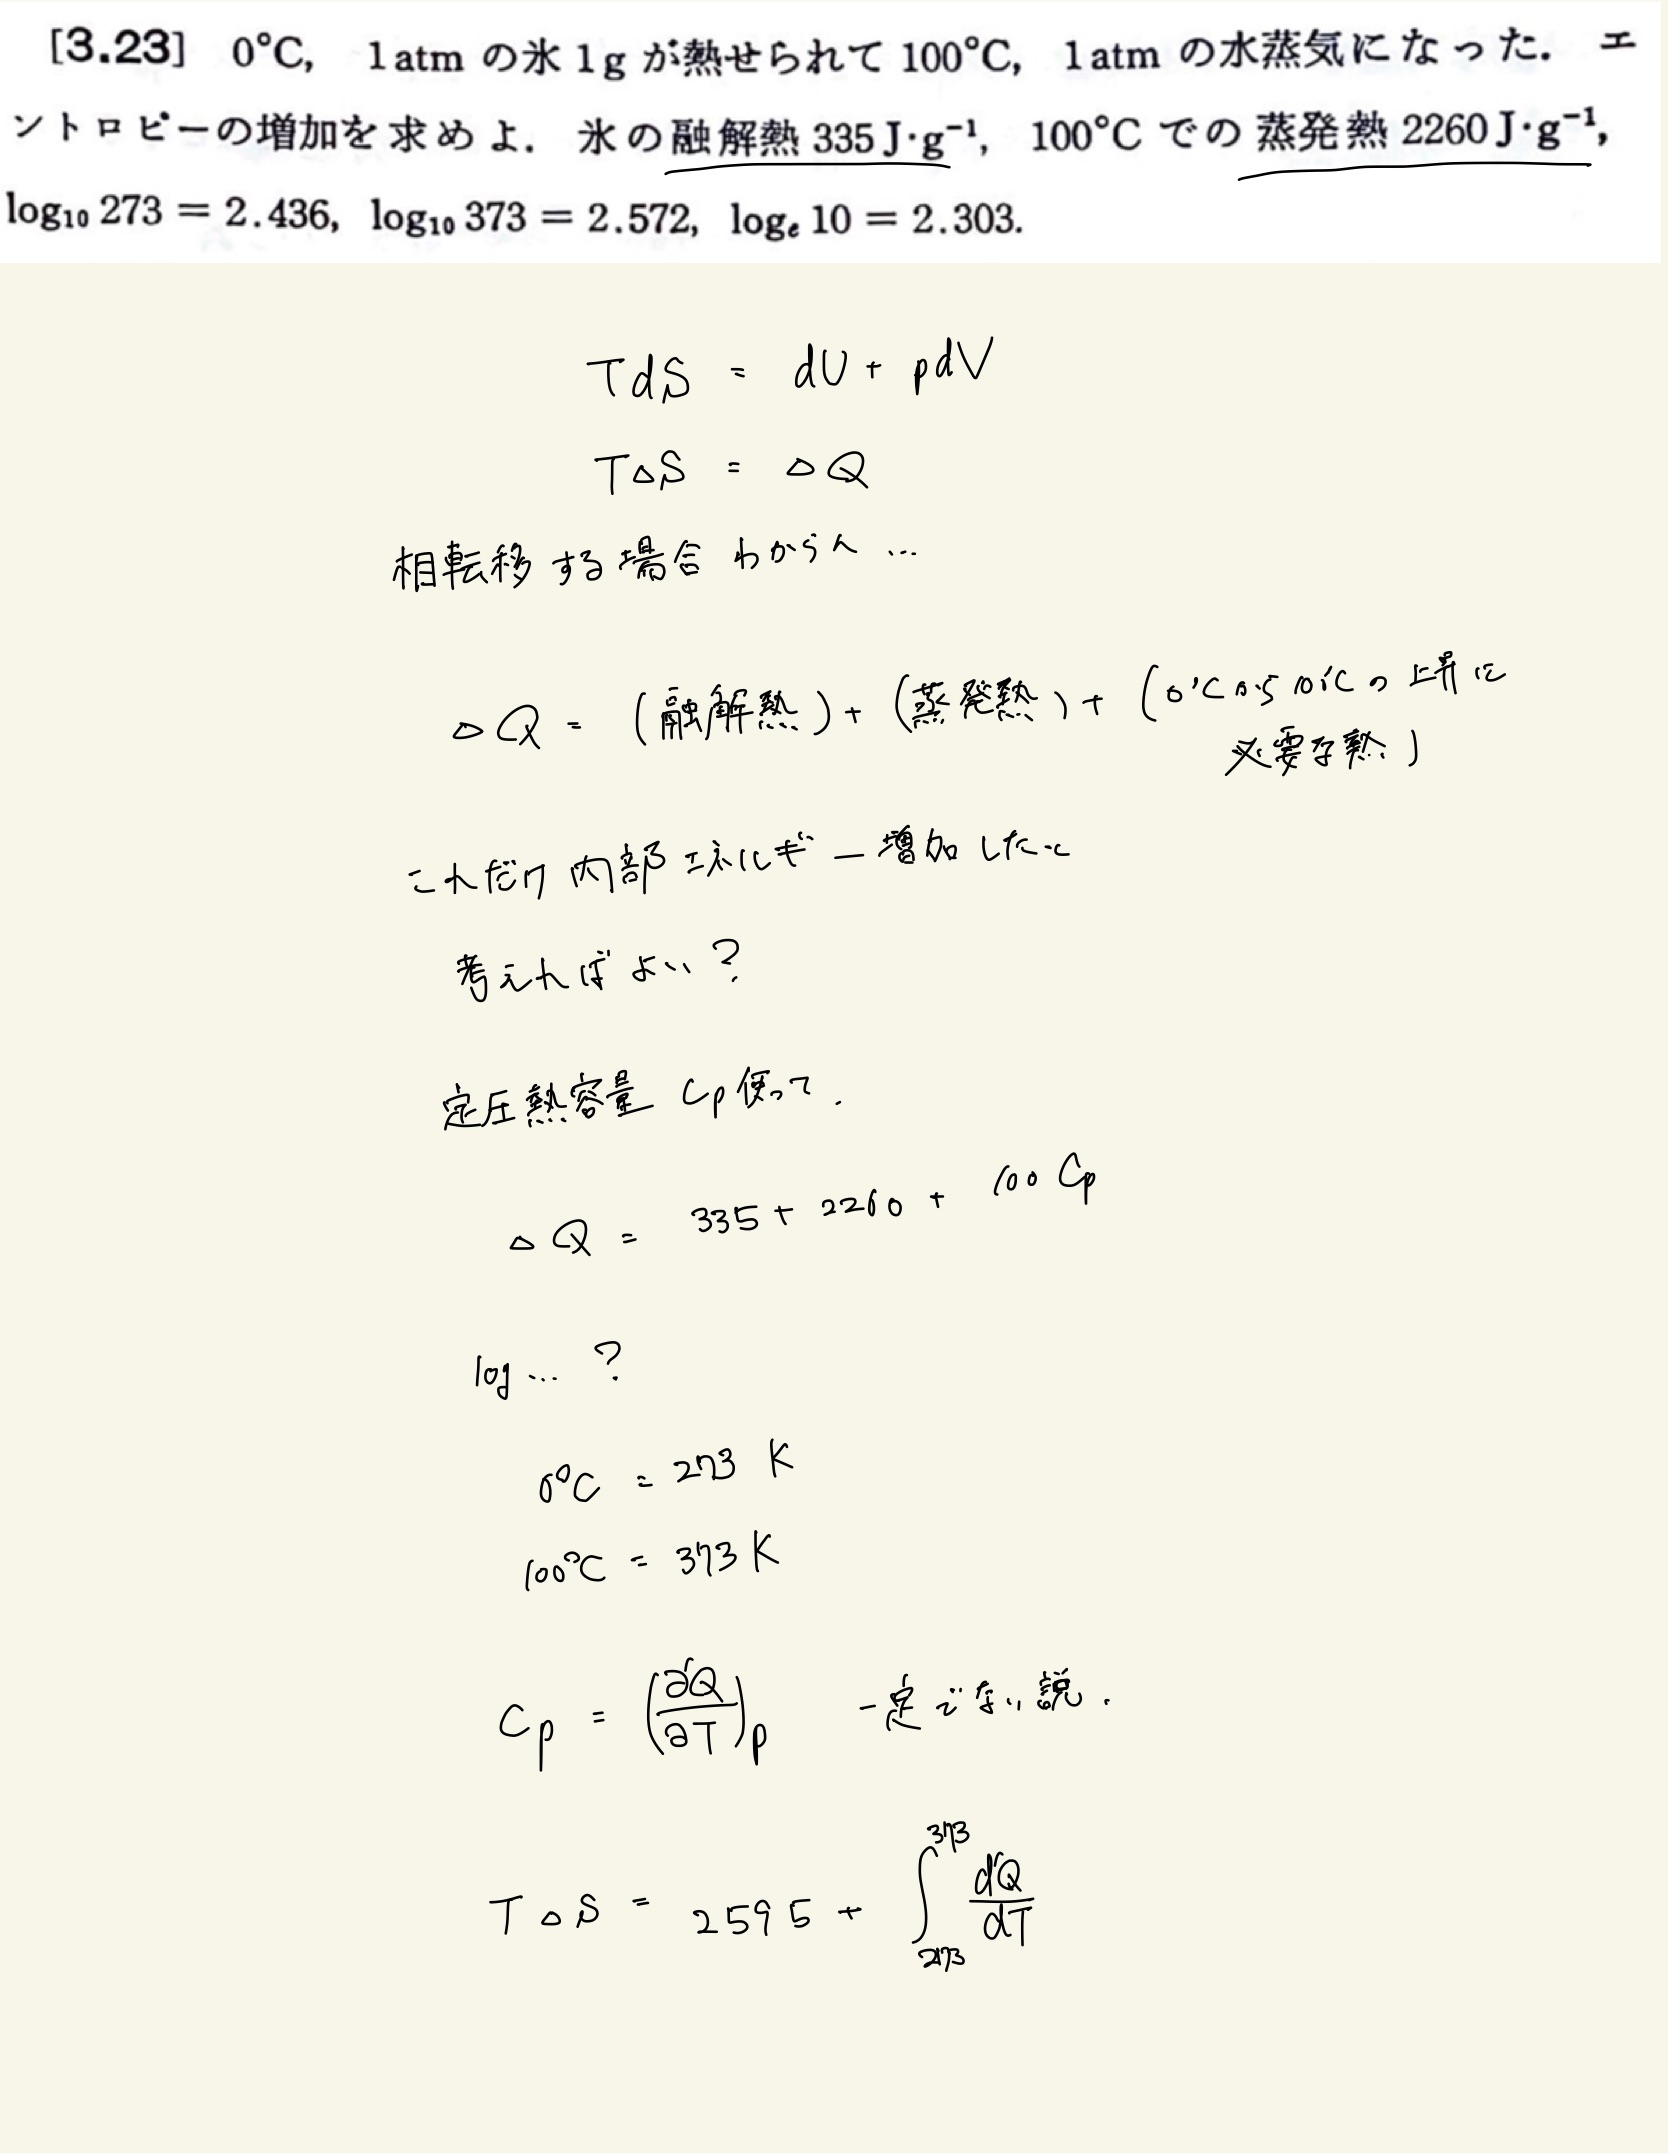 [3.23] 0°C, 1atm の氷 1g が熱せられて 100°C, 1atm の水蒸気になった. エ
ントロピーの増加を求めよ. 氷の融解熱 335 J·g⁻¹, 100°C での蒸発熱 2260 J·g⁻¹,
log₁₀ 273 = 2.436, log₁₀ 373 = 2.572, logₑ 10 = 2.303.
TdS = dU + pdV
T△S = △Q
相転移する場合わからん…
△Q = (融解熱) + (蒸発熱) + (0°Cから10°Cの上昇に
必要な熱)
これだけ内部エネルギー増加したと
考えればよい?
定圧熱容量 Cp 使って.
△Q = 335 + 2260 + 100 Cp
log … ?
0°C = 273 K
100°C = 373 K
Cp = (∂'Q/∂T)p 一定でない説.
T△S = 2595 + ∫₂₇₃³⁷³ d'Q/dT